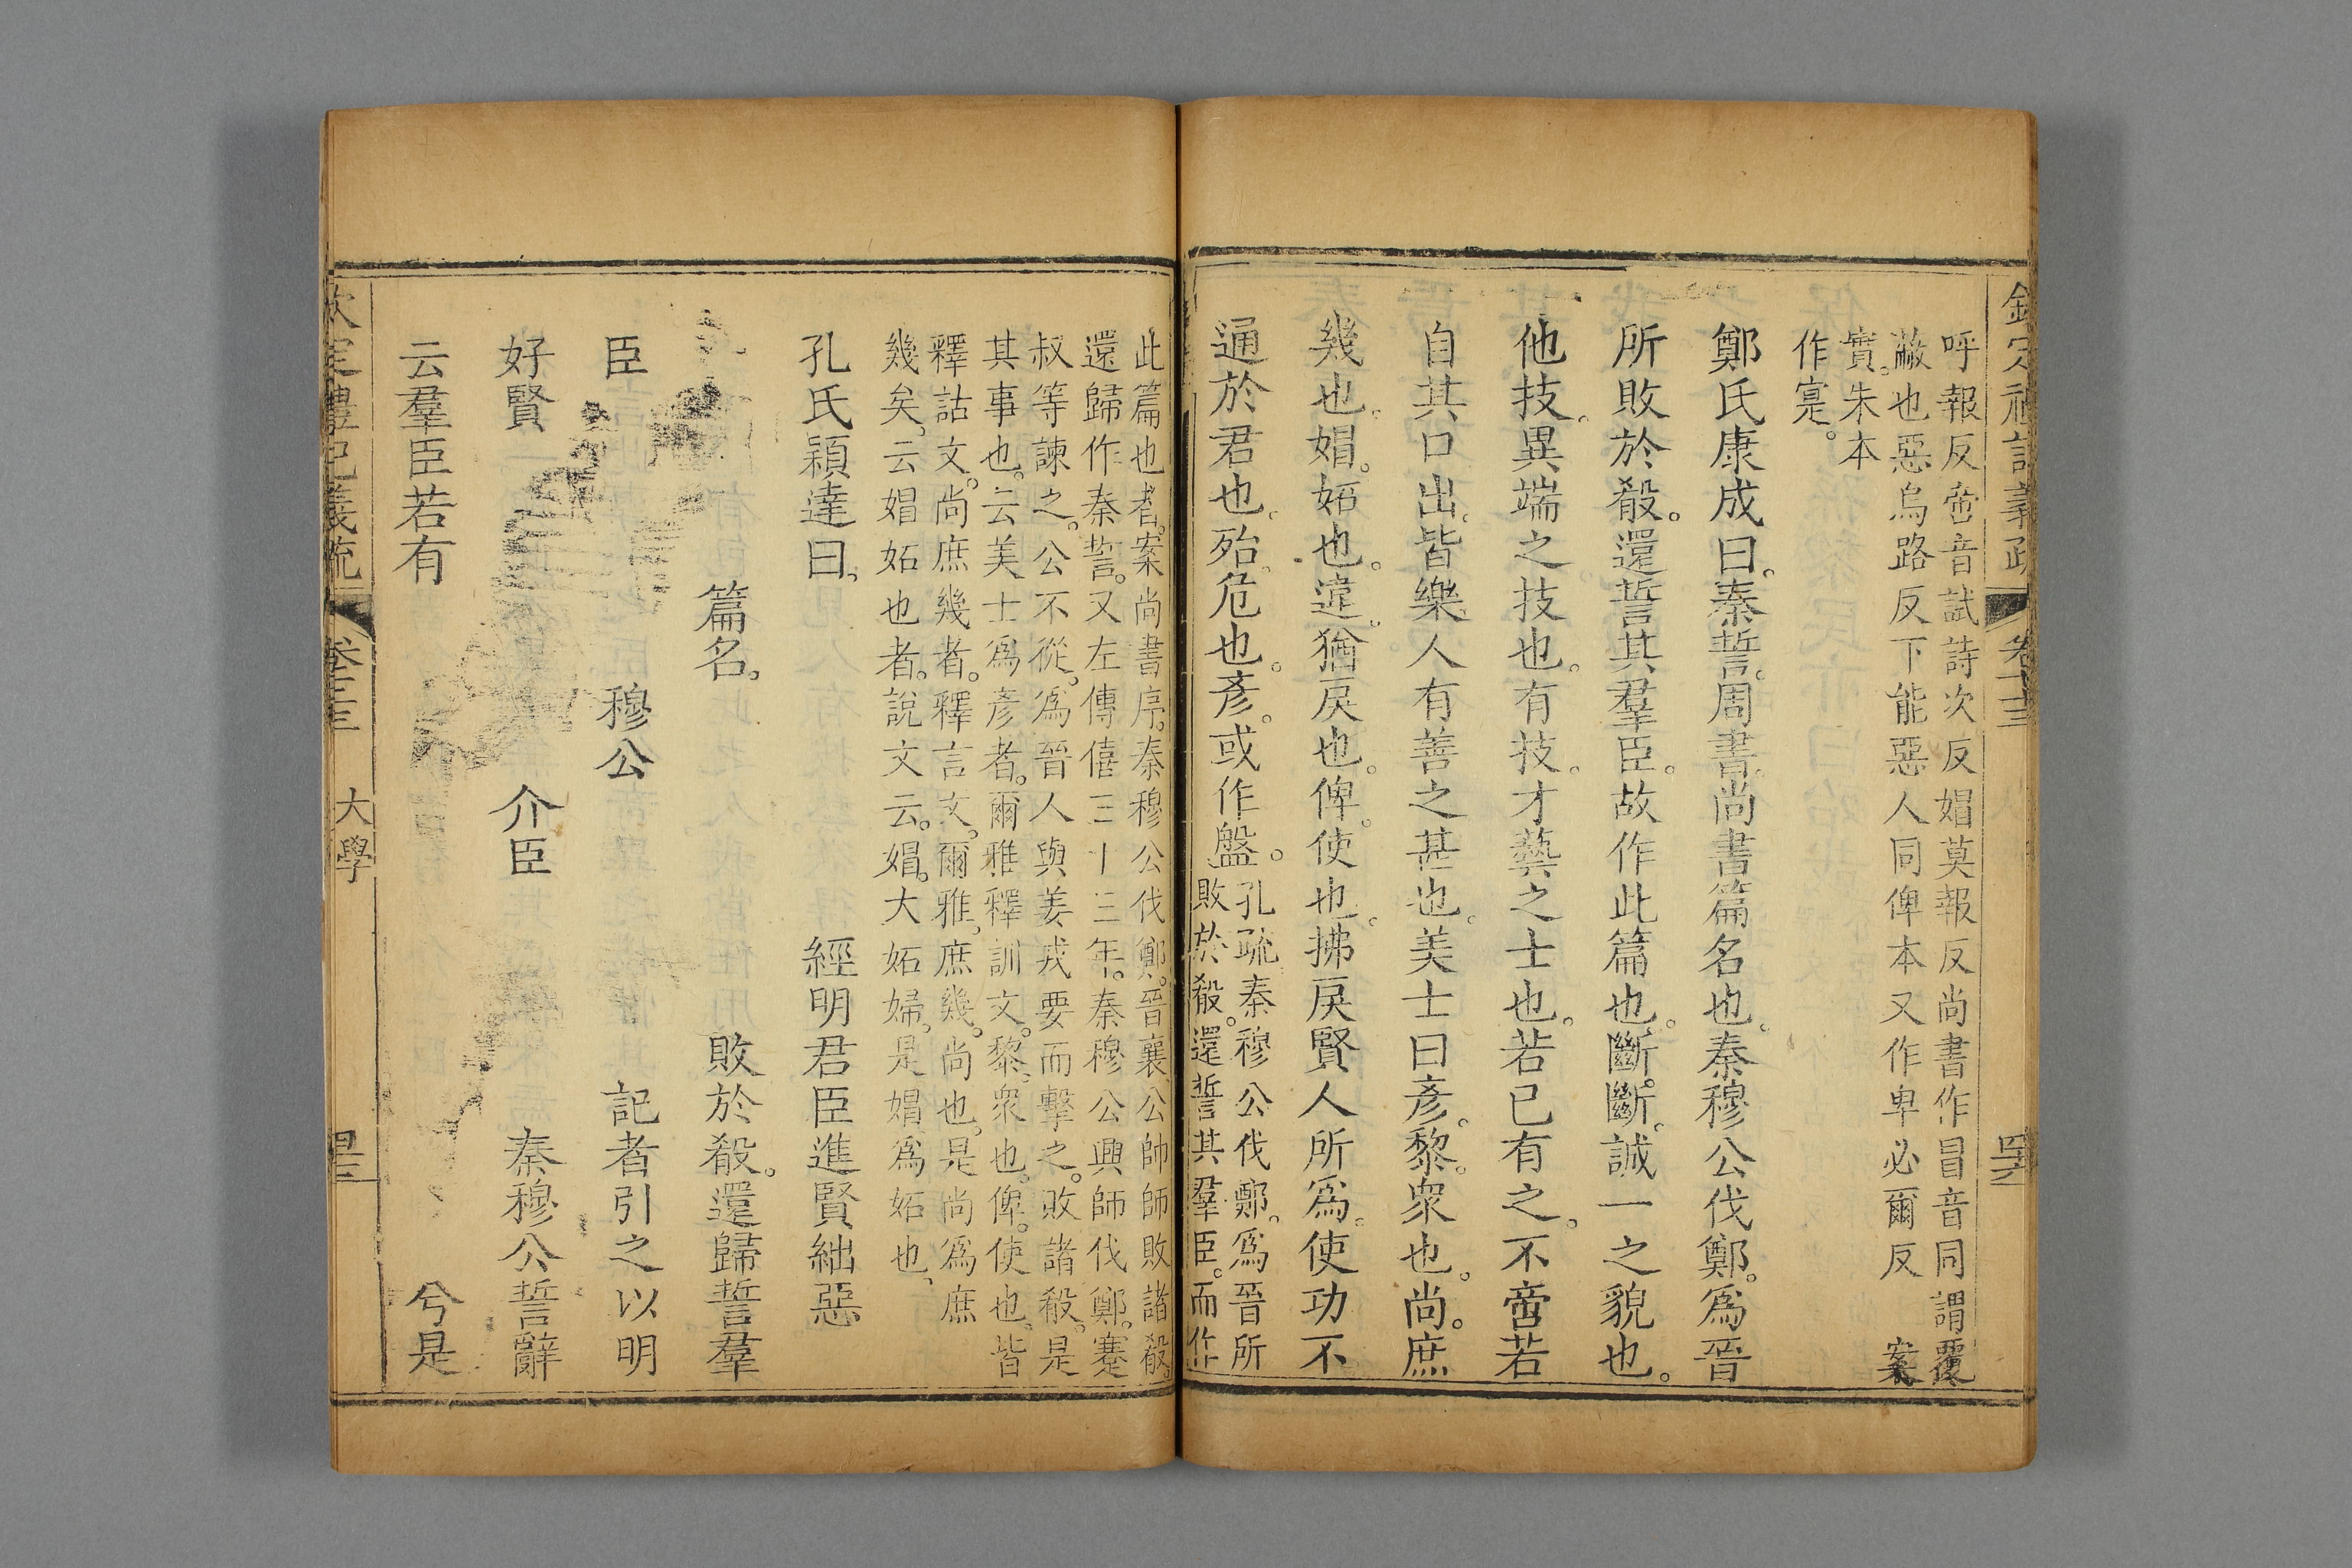 呼報反啻音試詩次反媢莫報反尚書作冒音同謂覆
蔽也惡烏路反下能惡人同俾本又作卑必爾反　案
實。朱本
作寔。
鄭氏康成曰。秦誓。周書尚書篇名也。秦穆公伐鄭。爲晉
所敗於殽。還誓其羣臣。故作此篇也。斷斷。誠一之貌也。
他技。異端之技也。有技。才藝之士也。若已有之。不啻若
自其口出。皆樂人有善之甚也。美士曰彥。黎。衆也。尚。庶
幾也。媢。妬也。違。猶戾也。俾。使也。拂戾賢人所爲。使功不
通於君也。殆。危也。彥。或作盤。
孔疏秦穆公伐鄭。爲晉所
敗於殽。還誓其羣臣。而作
此篇也者。案尚書序。秦穆公伐鄭。晉襄公帥師敗諸殽。
還歸作秦誓。又左傳僖三十三年。秦穆公興師伐鄭。蹇
叔等諫之。公不從。爲晉人與姜戎要而擊之。敗諸殽。是
其事也。云美士爲彥者。爾雅釋訓文。黎。衆也。俾。使也。皆
釋詁文。尚庶幾者。釋言文。爾雅。庶幾。尚也。是尚爲庶
幾矣。云媢妬也者。說文云。媢。大妬婦。是媢爲妬也。
孔氏穎達曰。　經明君臣進賢絀惡
篇名。　敗於殽。還歸誓羣
臣　穆公　記者引之以明
好賢　介臣　秦穆公誓辭
云羣臣若有　兮是
欽定禮記義疏　卷七十三　大學